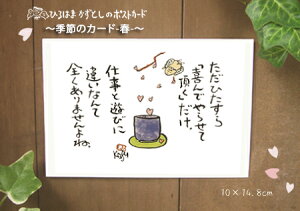 ひろはま かずとしのポストカード
～季節のカード-春-～
ただひたすら
「喜んでやらせて
頂く」だけ。
仕事と遊びに
違いなんて
全くありませんよね。
10×14.8cm